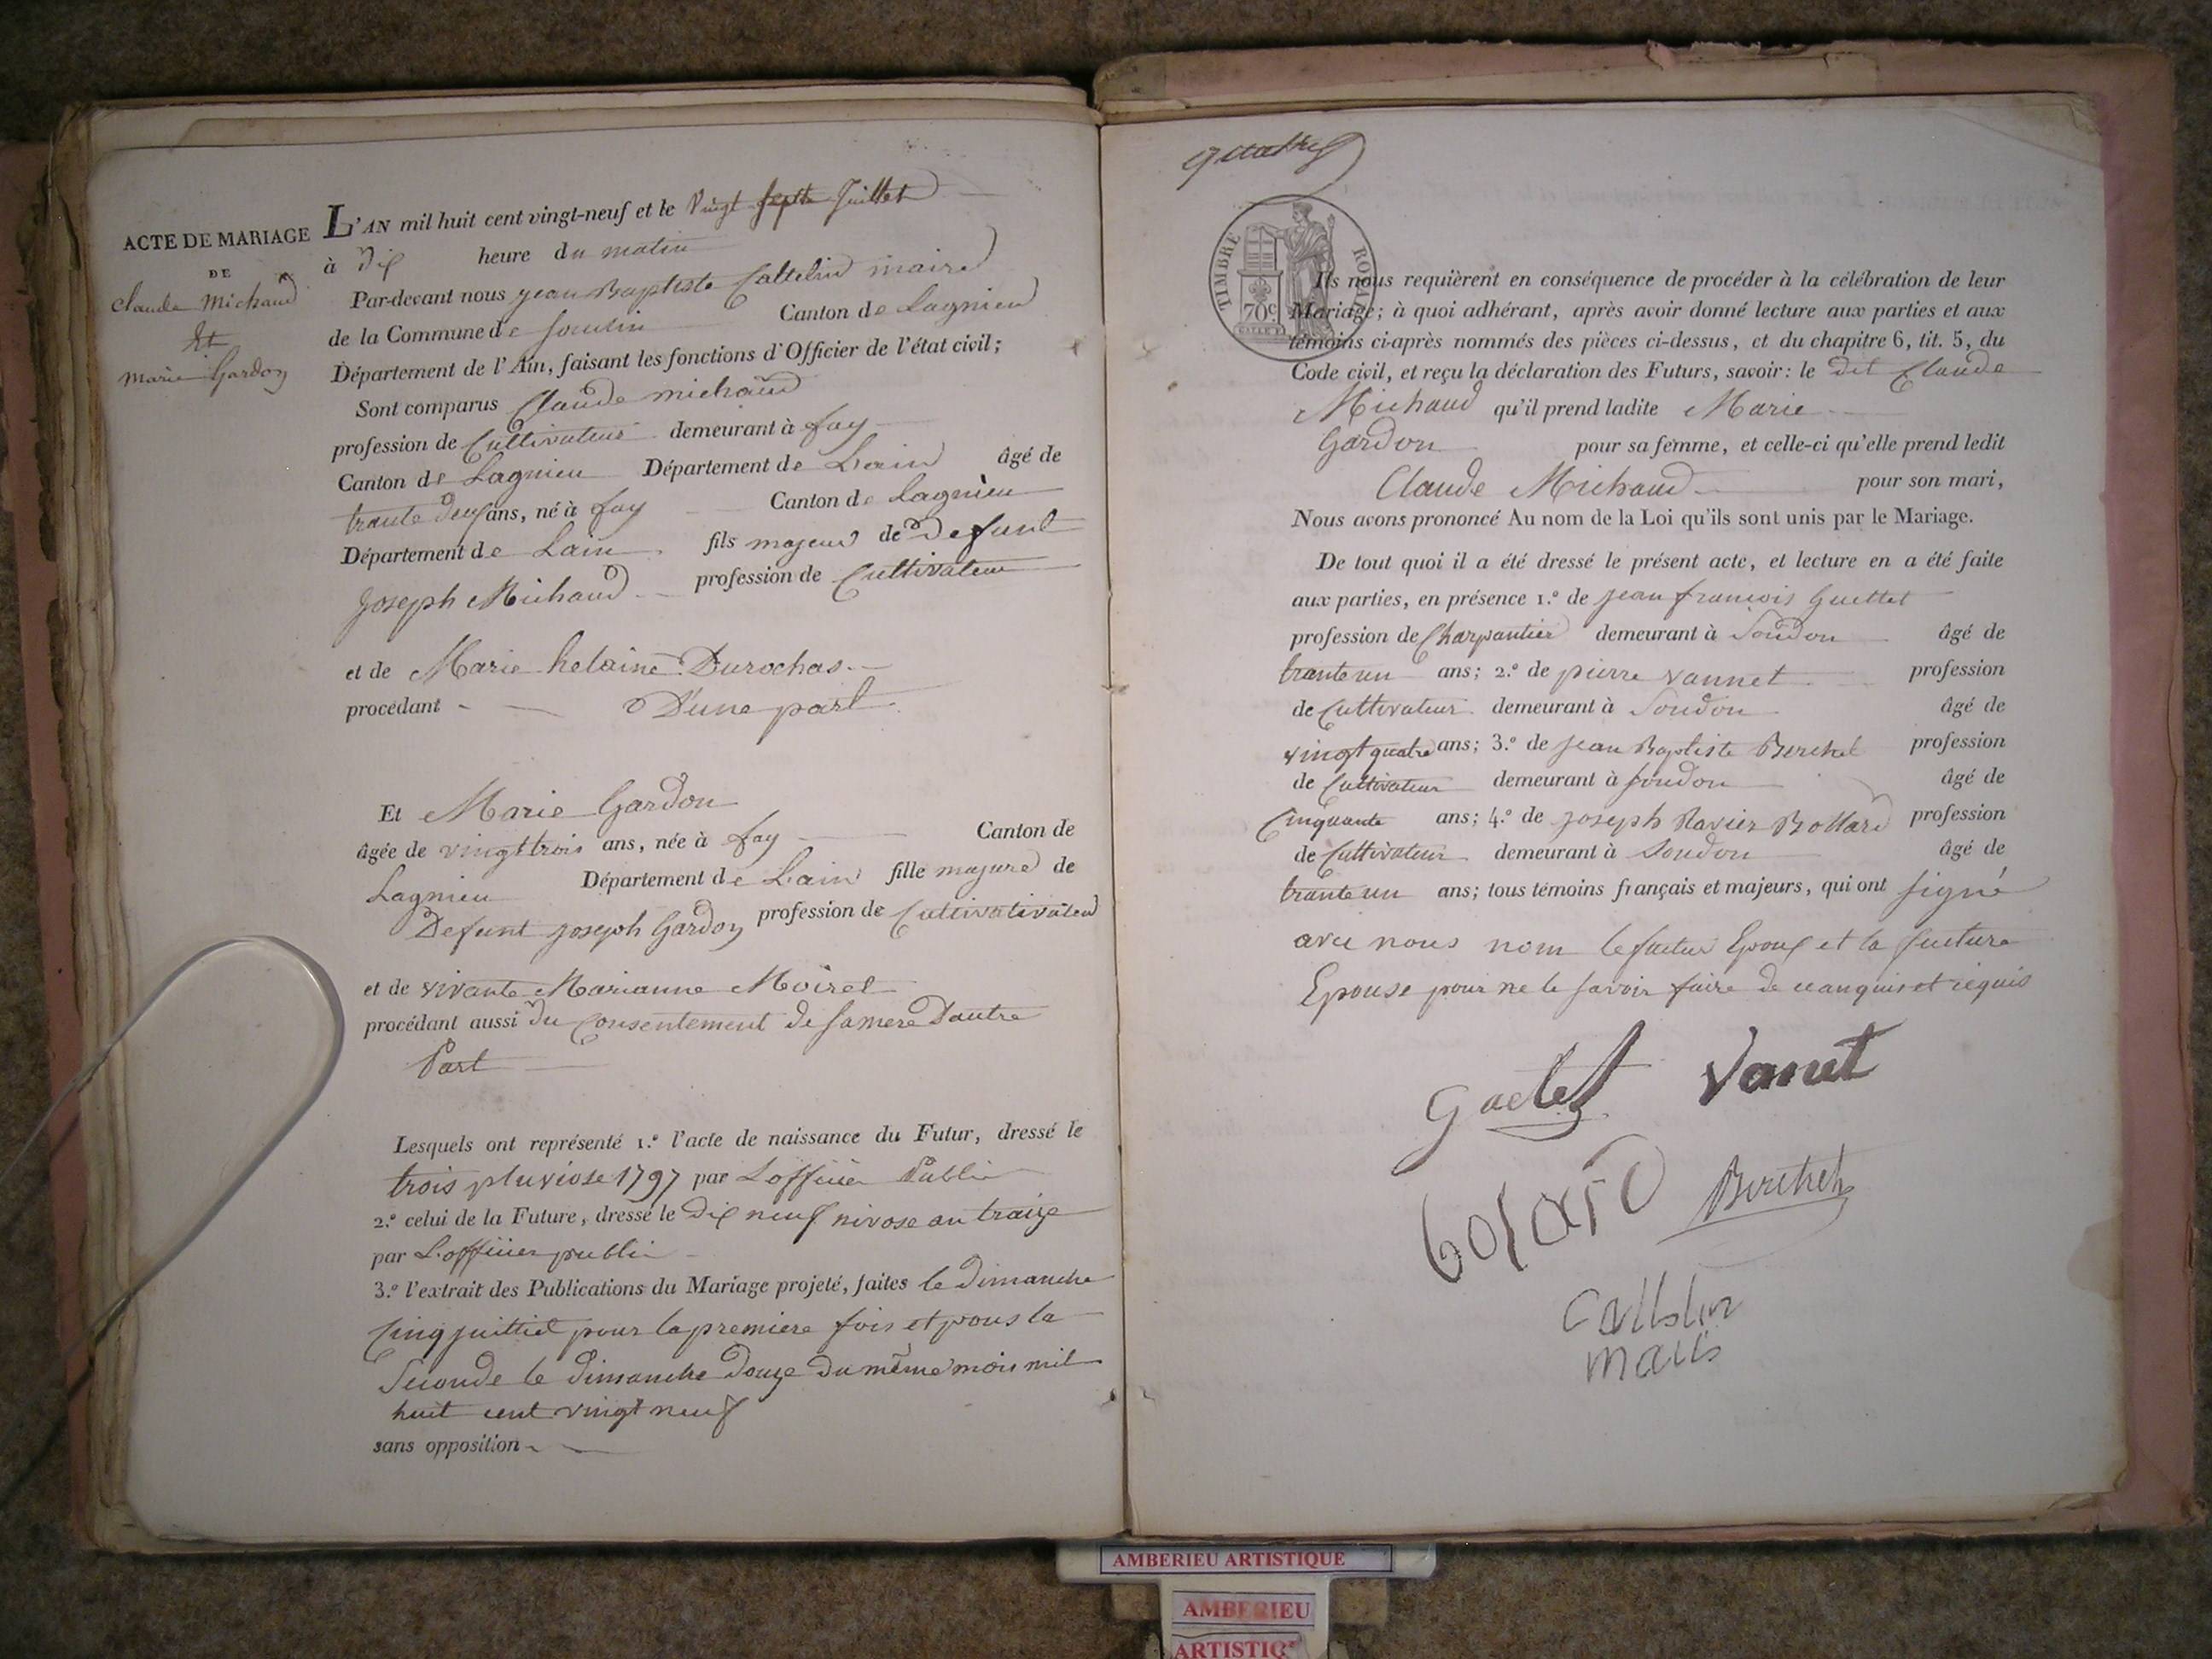 ACTE DE MARIAGE
DE
Claude Michaud
Et
Marie Gardon
L'AN mil huit cent vingt-neuf et le Vingt Septe Juillet
à dix heure du matin
Par-devant nous jean Baptiste Cattelin maire
de la Commune de Souclin Canton de Lagnieu
Département de l'Ain, faisant les fonctions d'Officier de l'état civil;
Sont comparus Claude michaud
profession de Cultivateur demeurant à fay
Canton de Lagnieu Département de Lain âgé de
trante deux ans, né à fay Canton de Lagnieu
Département de Lain fils majeur de Defunt
Joseph Michaud profession de Cultivateur
et de Marie helaine Durochas
procédant D'une part
Et Marie Gardon
âgée de vingttrois ans, née à fay Canton de
Lagnieu Département de Lain fille majure de
Defunt joseph Gardon profession de Cultivativateur
et de vivante Marianne Moiret
procédant aussi du Consentement de samere Dautre
Part
Lesquels ont représenté 1.º l'acte de naissance du Futur, dressé le
trois pluviose 1797 par Lofficier Public
2.º celui de la Future, dressé le dix neuf nivose an traize
par L'officier public
3.º l'extrait des Publications du Mariage projeté, faites le dimanche
Cinq juilliet pour la premiere fois et pous la
Seconde le dimanche douze du même mois mil
huit cent vingt neuf
sans opposition
quatre
TIMBRE ROYAL
70c
Ils nous requièrent en conséquence de procéder à la célébration de leur
Mariage; à quoi adhérant, après avoir donné lecture aux parties et aux
témoins ci-après nommés des pièces ci-dessus, et du chapitre 6, tit. 5, du
Code civil, et reçu la déclaration des Futurs, savoir: le dit Claude
Michaud qu'il prend ladite Marie
Gardon pour sa femme, et celle-ci qu'elle prend ledit
Claude Michaud pour son mari,
Nous avons prononcé Au nom de la Loi qu'ils sont unis par le Mariage.
De tout quoi il a été dressé le présent acte, et lecture en a été faite
aux parties, en présence 1.º de jean francois Guettet
profession de Charpantier demeurant à Soudon âgé de
tranteun ans; 2.º de pierre vannet profession
de Cultivateur demeurant à Soudon âgé de
vingt quatre ans; 3.º de jean Baptiste Berchet profession
de Cultivateur demeurant à Soudon âgé de
Cinquante ans; 4.º de joseph Xavier Bollard profession
de Cultivateur demeurant à Soudon âgé de
tranteun ans; tous témoins français et majeurs, qui ont signé
avec nous nom le futur Epoux et la futture
Epouse pour ne le savoir faire de ce anquis et requis
Gaetet Vanet
Berthet
maiis
AMBERIEU ARTISTIQUE
AMBERIEU
ARTISTIQ